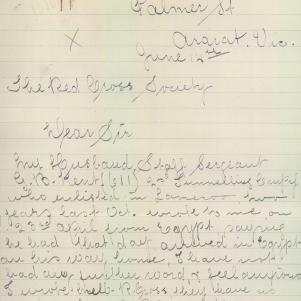 Palmer St
x
Ararat. Vic.
June 14th
The Red Cross Society
Dear Sir
My Husband Staff Sergeant
G. B. Kent (611) 2nd Tunnelling Coy
who enlisted in
years last Oct. wrote to me on
23rd April from Egypt saying
he had that day arrived in Egypt
on his way home. I have not
had any further word & feel anxious
I wrote Melb. R Cross they have no